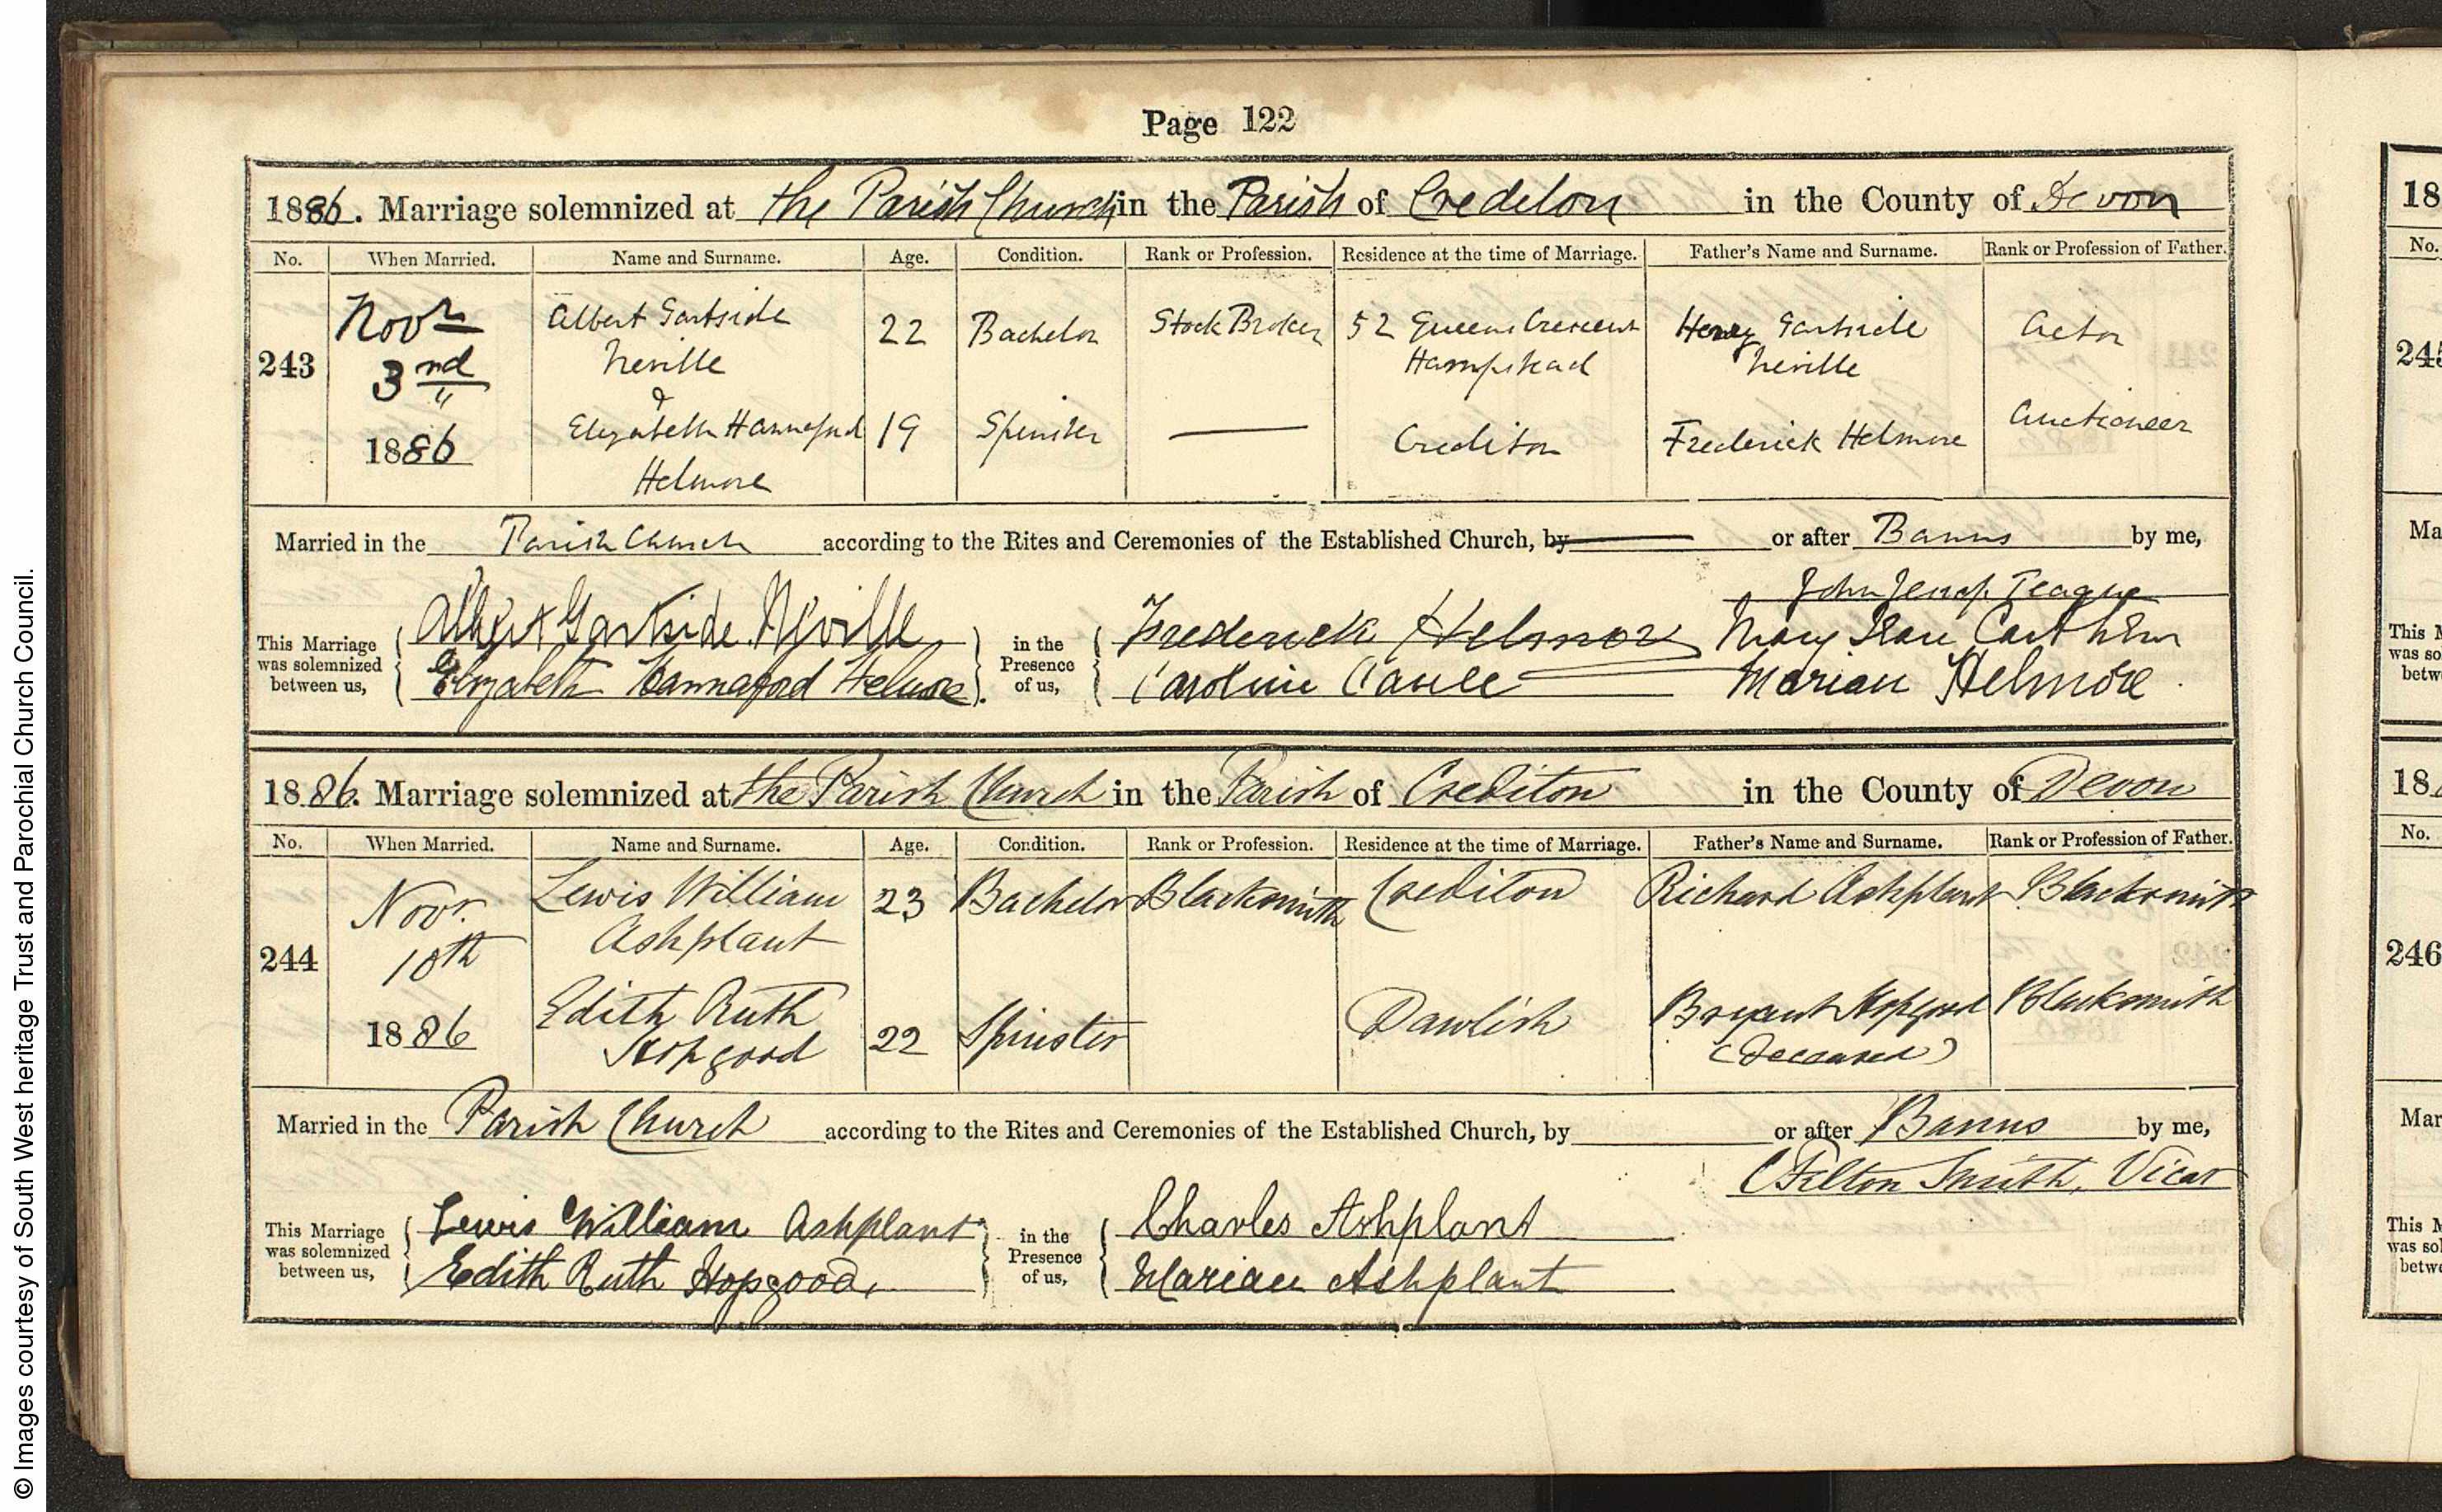 Page 122
1886. Marriage solemnized at the Parish Church in the Parish of Crediton in the County of Devon
No. When Married. Name and Surname. Age. Condition. Rank or Profession. Residence at the time of Marriage. Father's Name and Surname. Rank or Profession of Father.
243 Novr 3rd 1886
Albert Gartside Neville 22 Bachelor Stock Broker 52 Queens Crescent Hampstead Henry Gartside Neville Actor
&
Elizabeth Hannaford Helmore 19 Spinster — Crediton Frederick Helmore Auctioneer
Married in the Parish Church according to the Rites and Ceremonies of the Established Church, by or after Banns by me,
John Jessop Teague
This Marriage was solemnized between us, Albert Gartside Neville Elizabeth Hannaford Helmore in the Presence of us, Frederick Helmore Mary Caroline Marian Helmore
1886. Marriage solemnized at the Parish Church in the Parish of Crediton in the County of Devon
No. When Married. Name and Surname. Age. Condition. Rank or Profession. Residence at the time of Marriage. Father's Name and Surname. Rank or Profession of Father.
244 Novr. 10th 1886
Lewis William Ashplant 23 Bachelor Blacksmith Crediton Richard Ashplant Blacksmith
Edith Ruth Hopgood 22 Spinster Dawlish Bryant Hopgood (Deceased) Blacksmith
Married in the Parish Church according to the Rites and Ceremonies of the Established Church, by or after Banns by me,
C Felton Smith, Vicar
This Marriage was solemnized between us, Lewis William Ashplant Edith Ruth Hopgood, in the Presence of us, Charles Ashplant Marian Ashplant
18
No.
245
Ma
This M
was so
betw
18
No.
246
Mar
This M
was sol
betwe
© Images courtesy of South West heritage Trust and Parochial Church Council.